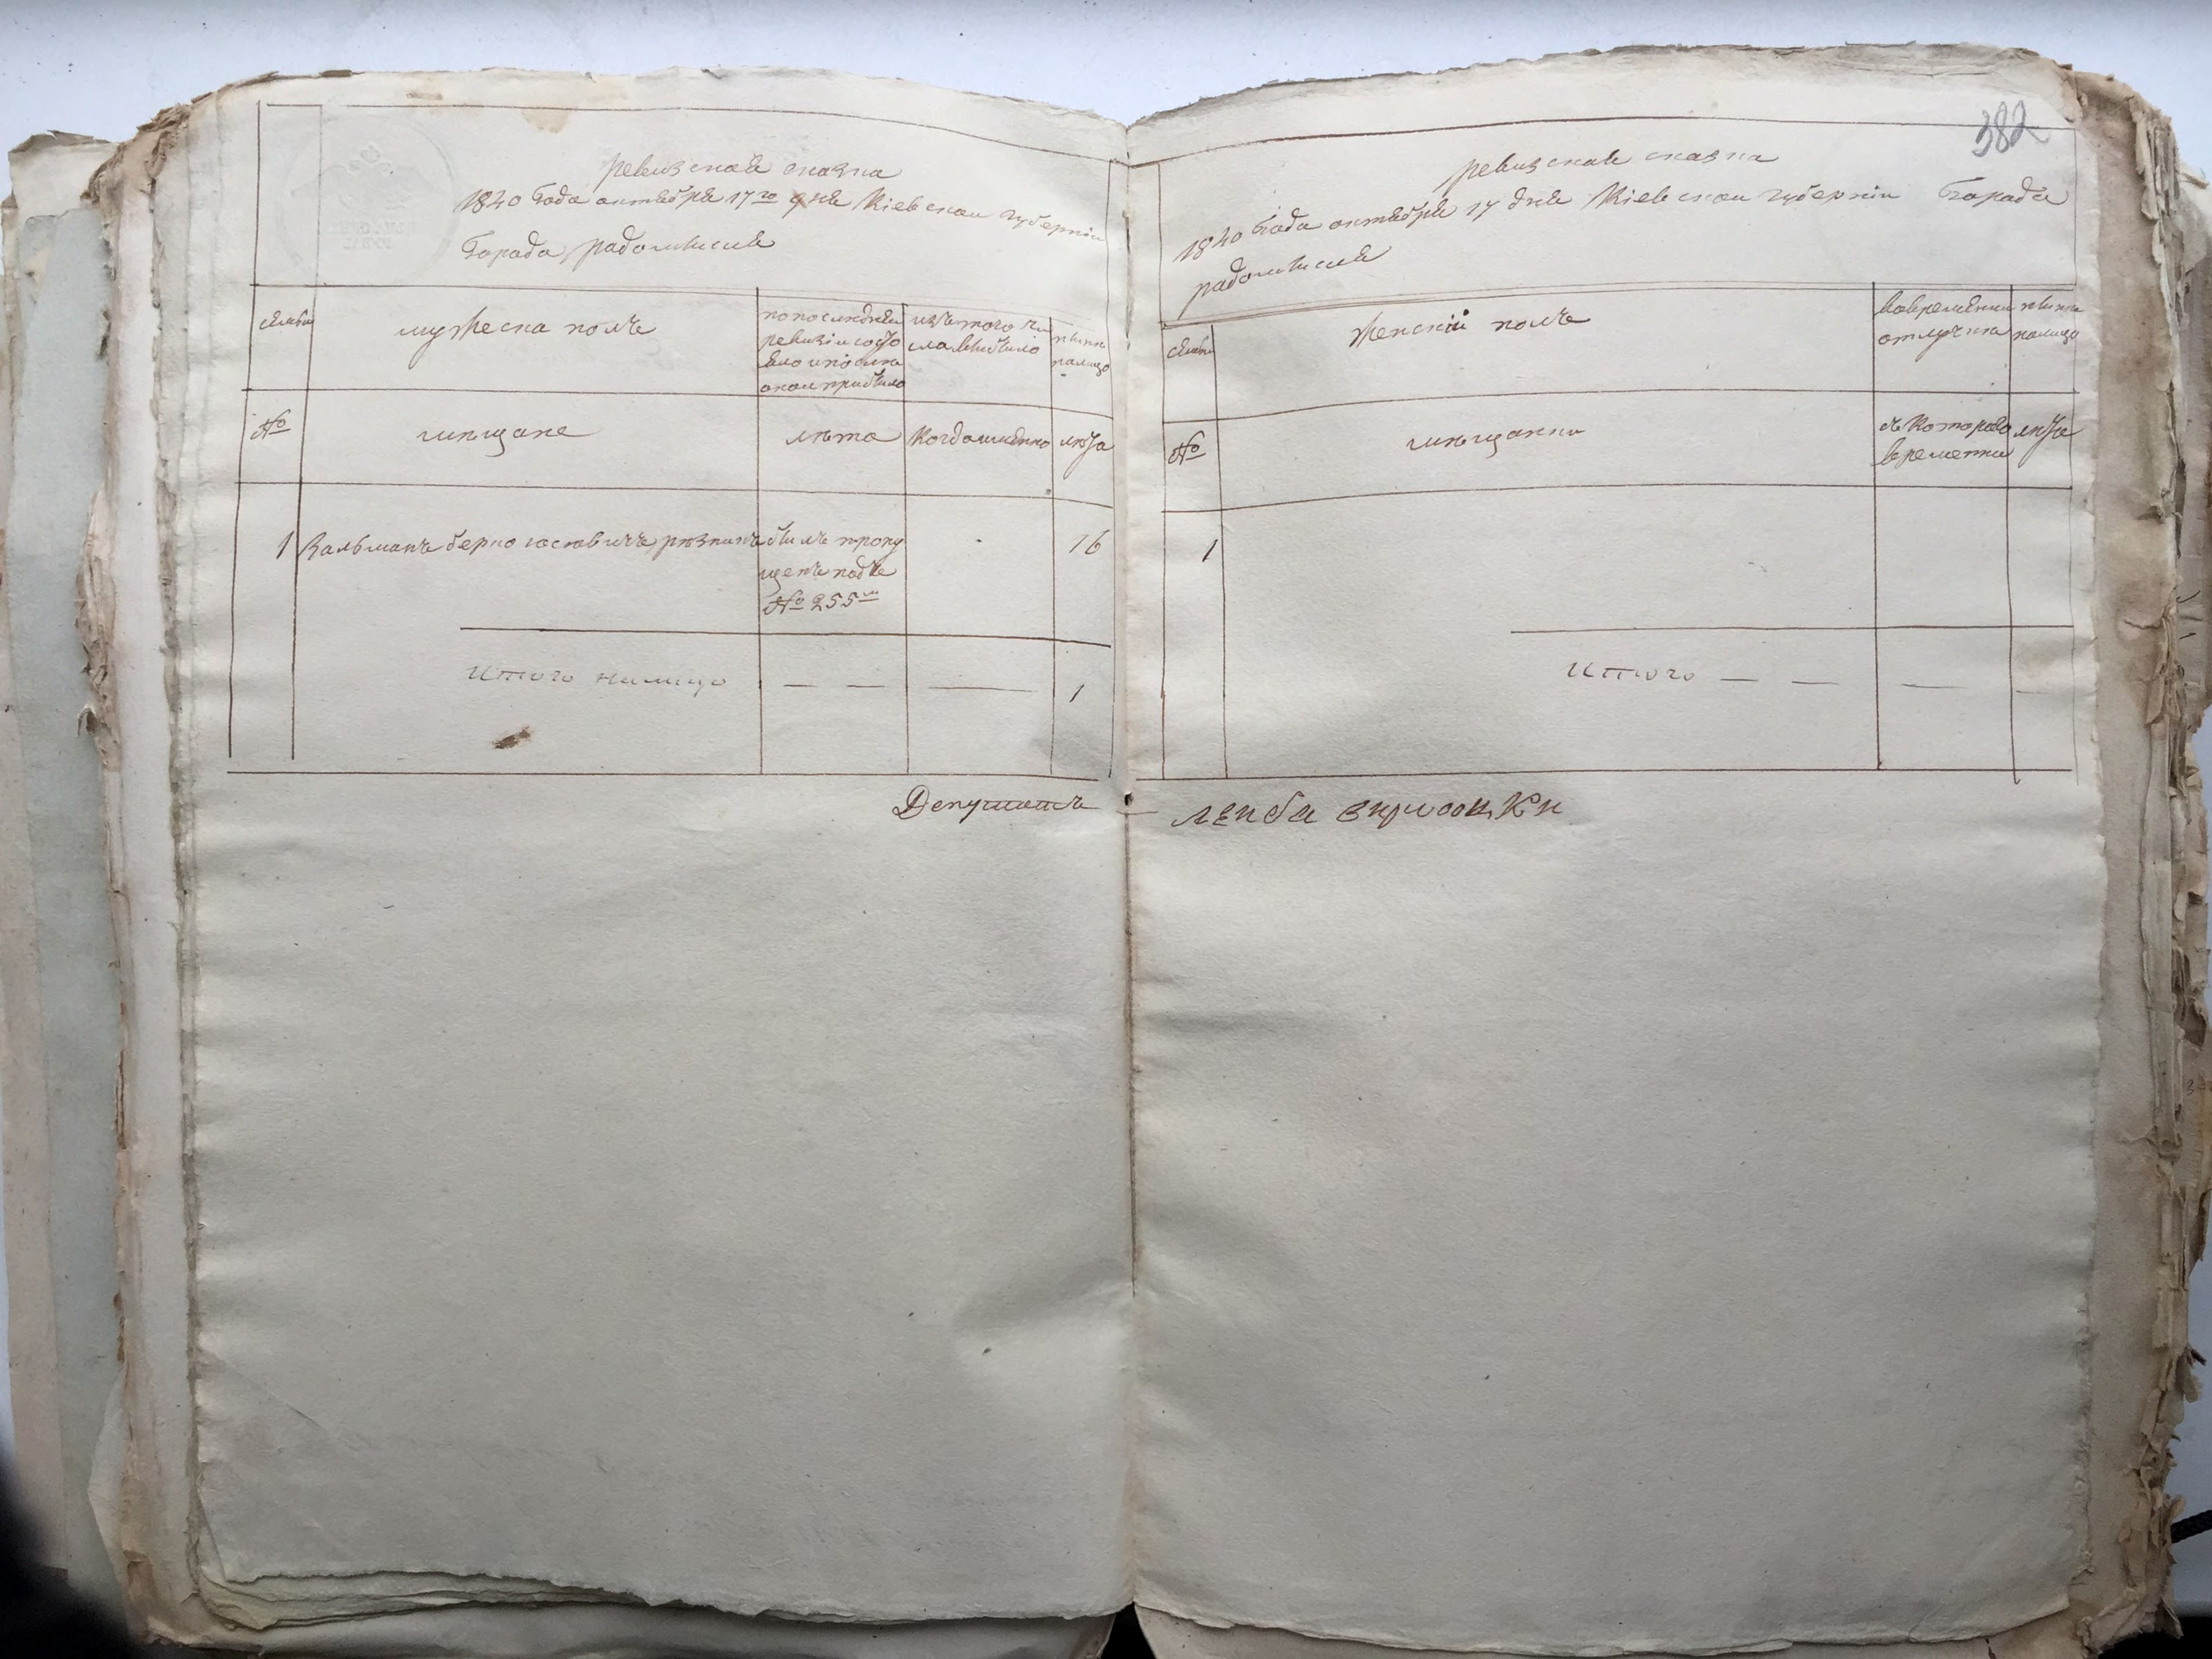 382
ревизская сказка
1840 Года октября 17го дня Кіевскои губерніи
Города радомысля
семьи
мужеска полъ
по последней
ревизіи состо
яло и после
оной прибыло
изъ того чи
сла выбыло
ныне
налицо
№
мещане
лета
когда имянно
лета
1
Зальманъ берко іосіовичъ резникъ
былъ пропу
щенъ подъ
№ 255м
16
Итого налицо — — — 1
Депутатъ
ревизская сказка
1840 Года октября 17 дня Кіевскои губерніи Города
радомысля
семьи
Женскій полъ
вовременни
отлучка
ныне
налицо
№
мещанки
съ которова
временни
лета
1
Итого — — — —
лейба